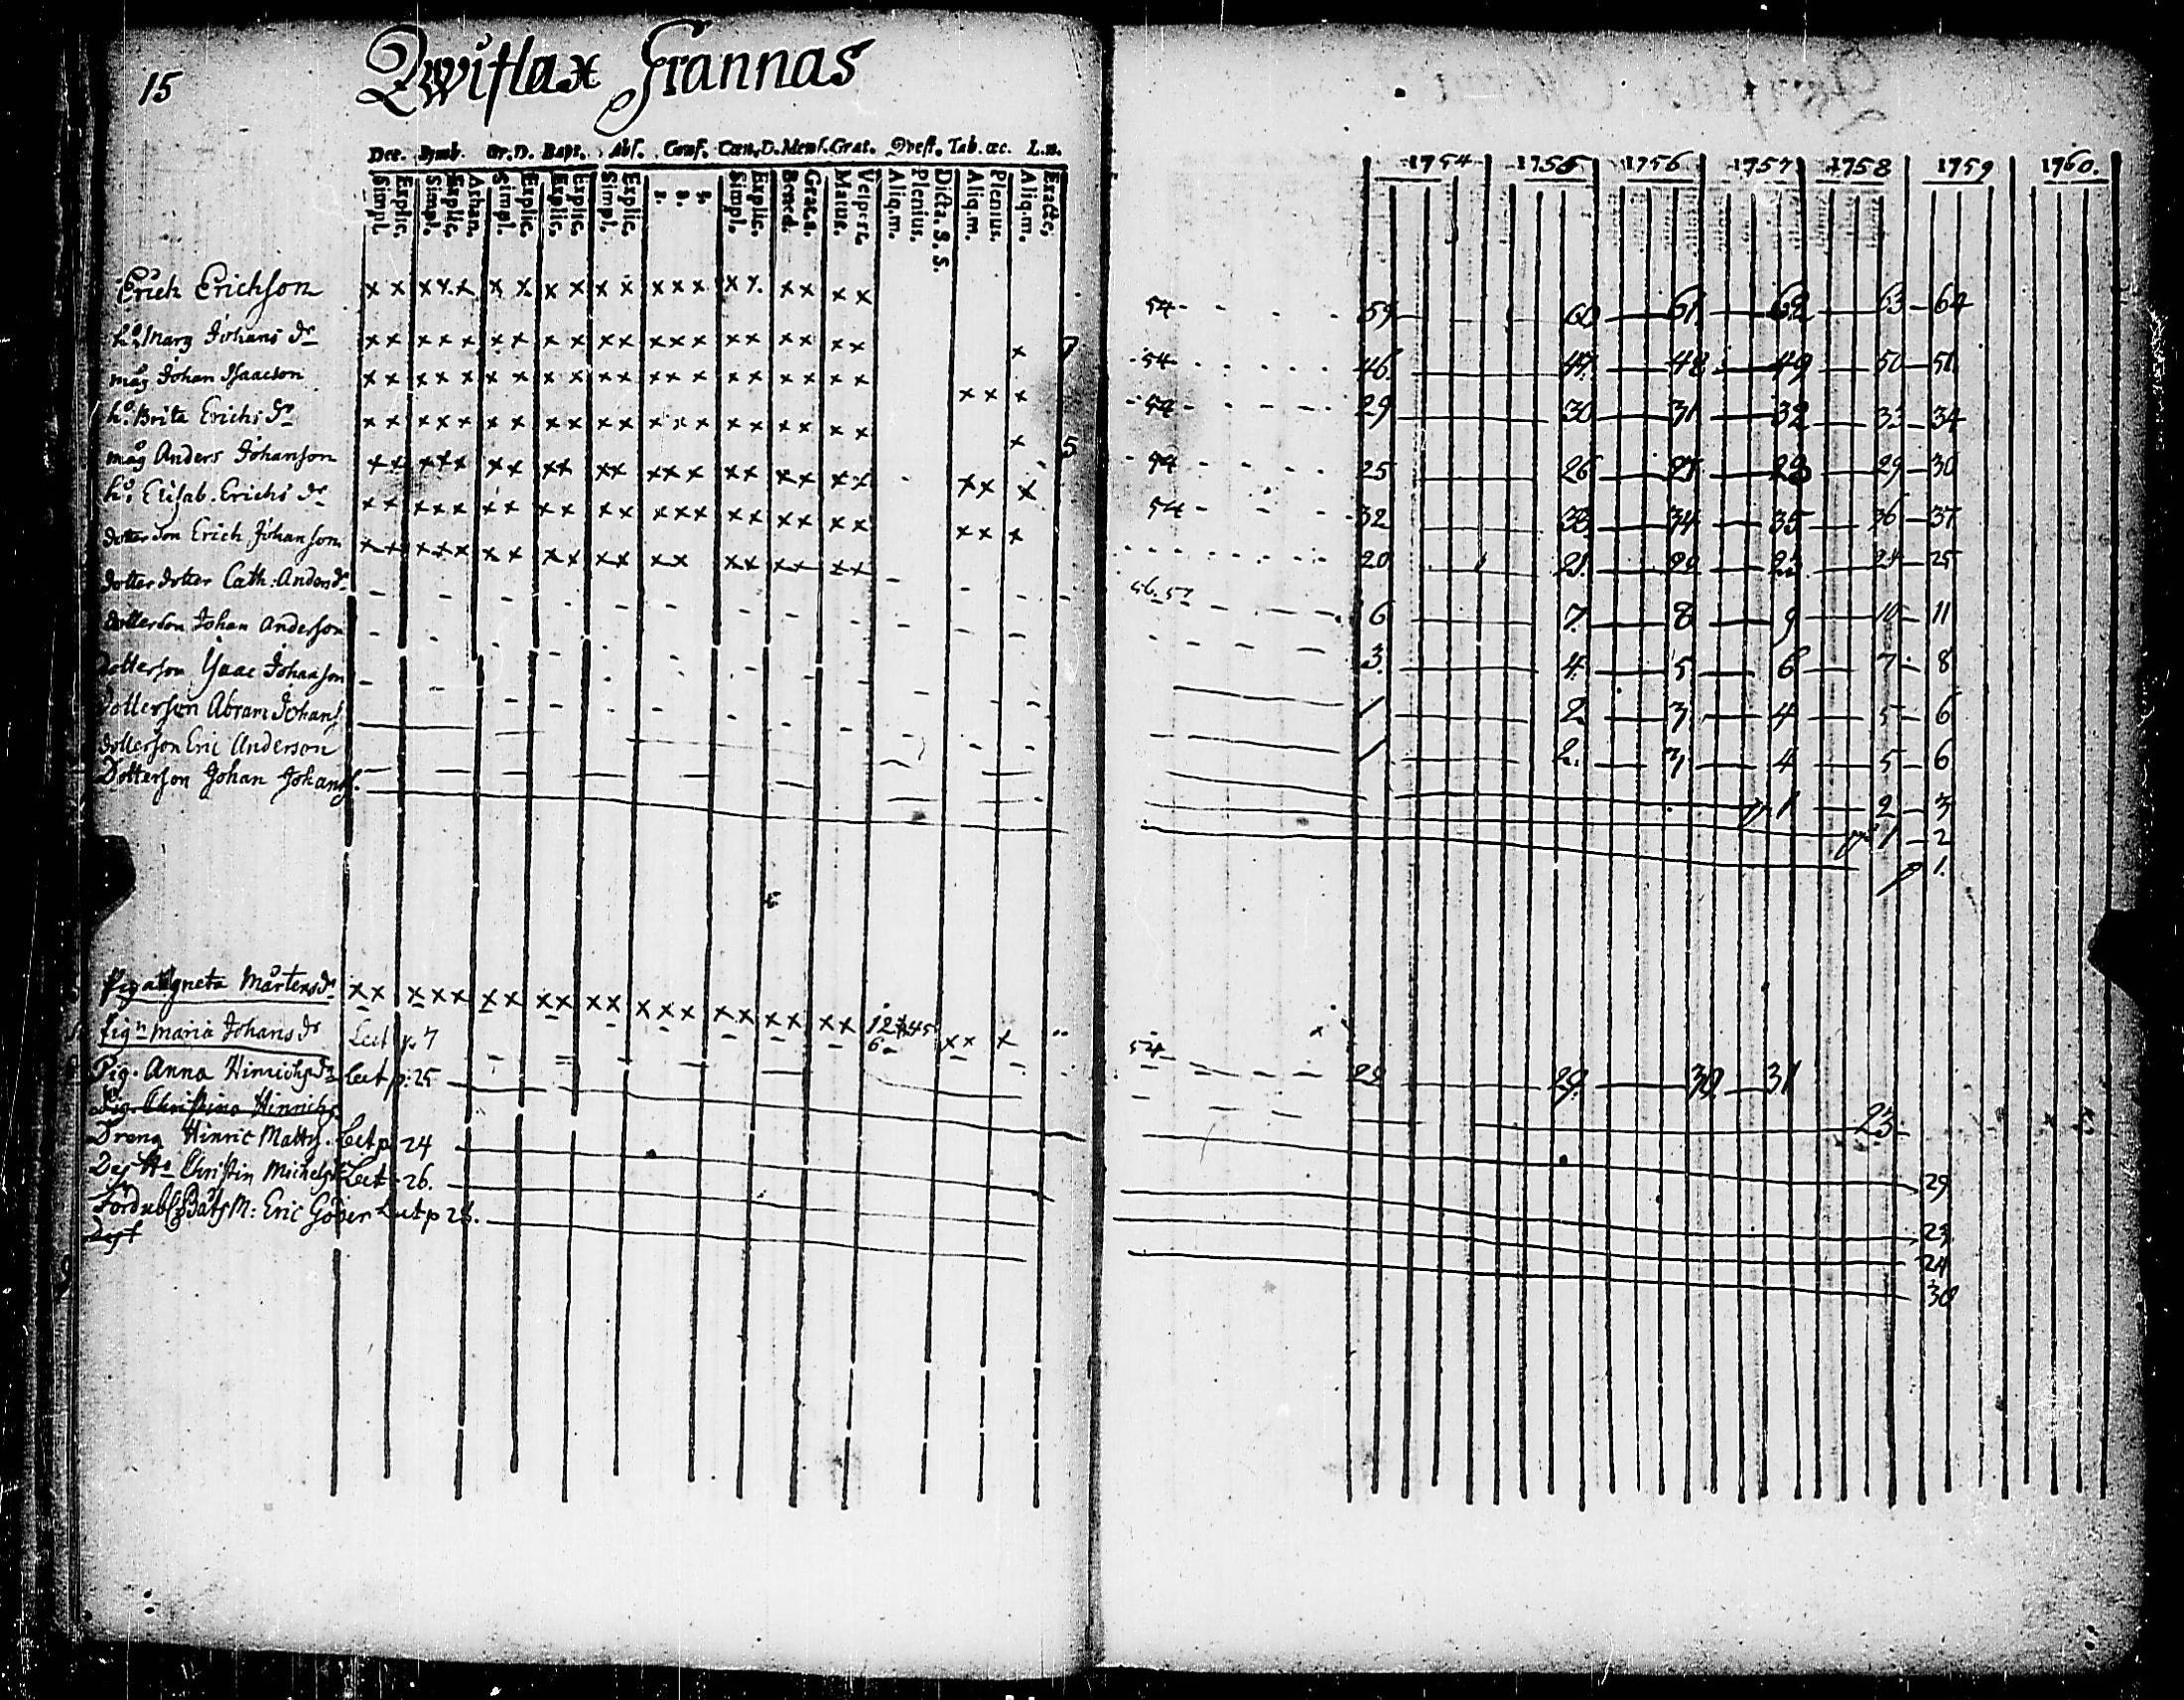 15
Qwiflax Grannas
Dec. Symb. Or.D. Bapt. Abs. Conf. Cœn.D. Mens. Grat. Quæst. Tab. œc. L.n.
Simpl. Explic. Simpl. Explic. Athan. Simpl. Explic. Explic. Explic. Simpl. Explic. 1. 2. 3. Simpl. Explic. Bened. Grac.a. Matut. Vespert. Aliq.m. Plenius. Dicta. S. S. Aliq.m. Plenius. Aliq.m. Exacte.
1754 1755 1756 1757 1758 1759 1760.
Erich Erichson x x x x x x x x x x x x x x x x x x x x 54 59 60 61 62 63 64
h:o Marg Johans dr x x x x x x x x x x x x x x x x x x x x x 7 54 46 47 48 49 50 51
måg Johan Isaacson x x x x x x x x x x x x x x x x x x x x x x x 54 29 30 31 32 33 34
h:o Brita Erichs dr x x x x x x x x x x x x x x x x x x x x x 5 54 25 26 27 28 29 30
måg Anders Johanson x x x x x x x x x x x x x x x x x x x x x x x 54 32 33 34 35 36 37
h:o Elisab. Erichs dr x x x x x x x x x x x x x x x x x x x x x x x 20 21 22 23 24 25
dotter Son Erich Johanson x x x x x x x x x x x x x x x x x x x 56. 57 6 7 8 9 10 11
dotter dotter Cath: Anders dr 3 4 5 6 7 8
dotterson Johan Anderson 1 2 3 4 5 6
Dotterson Isaac Johanson 1 2. 3 4 5 6
dotterson Abram Johans. 1 2 3
dotterson Eric Anderson 1 2
Dotterson Johan Johans. 1.
Piga Agneta Mårtens dr x x x x x x x x x x x x x x x x x x x x 12 45 6 x x x
Pig:n Maria Johans dr Lect p. 7 54 28 29 30 31
Pig. Anna Hinrichs dr Lect p. 25 23
Pig. Christina Hinrichs
Dreng Hinric Matts. Lect p 24 29
Dess H:o Christin Michels Lect 26. 23
Eric Lect p 28. 24
Dess 30